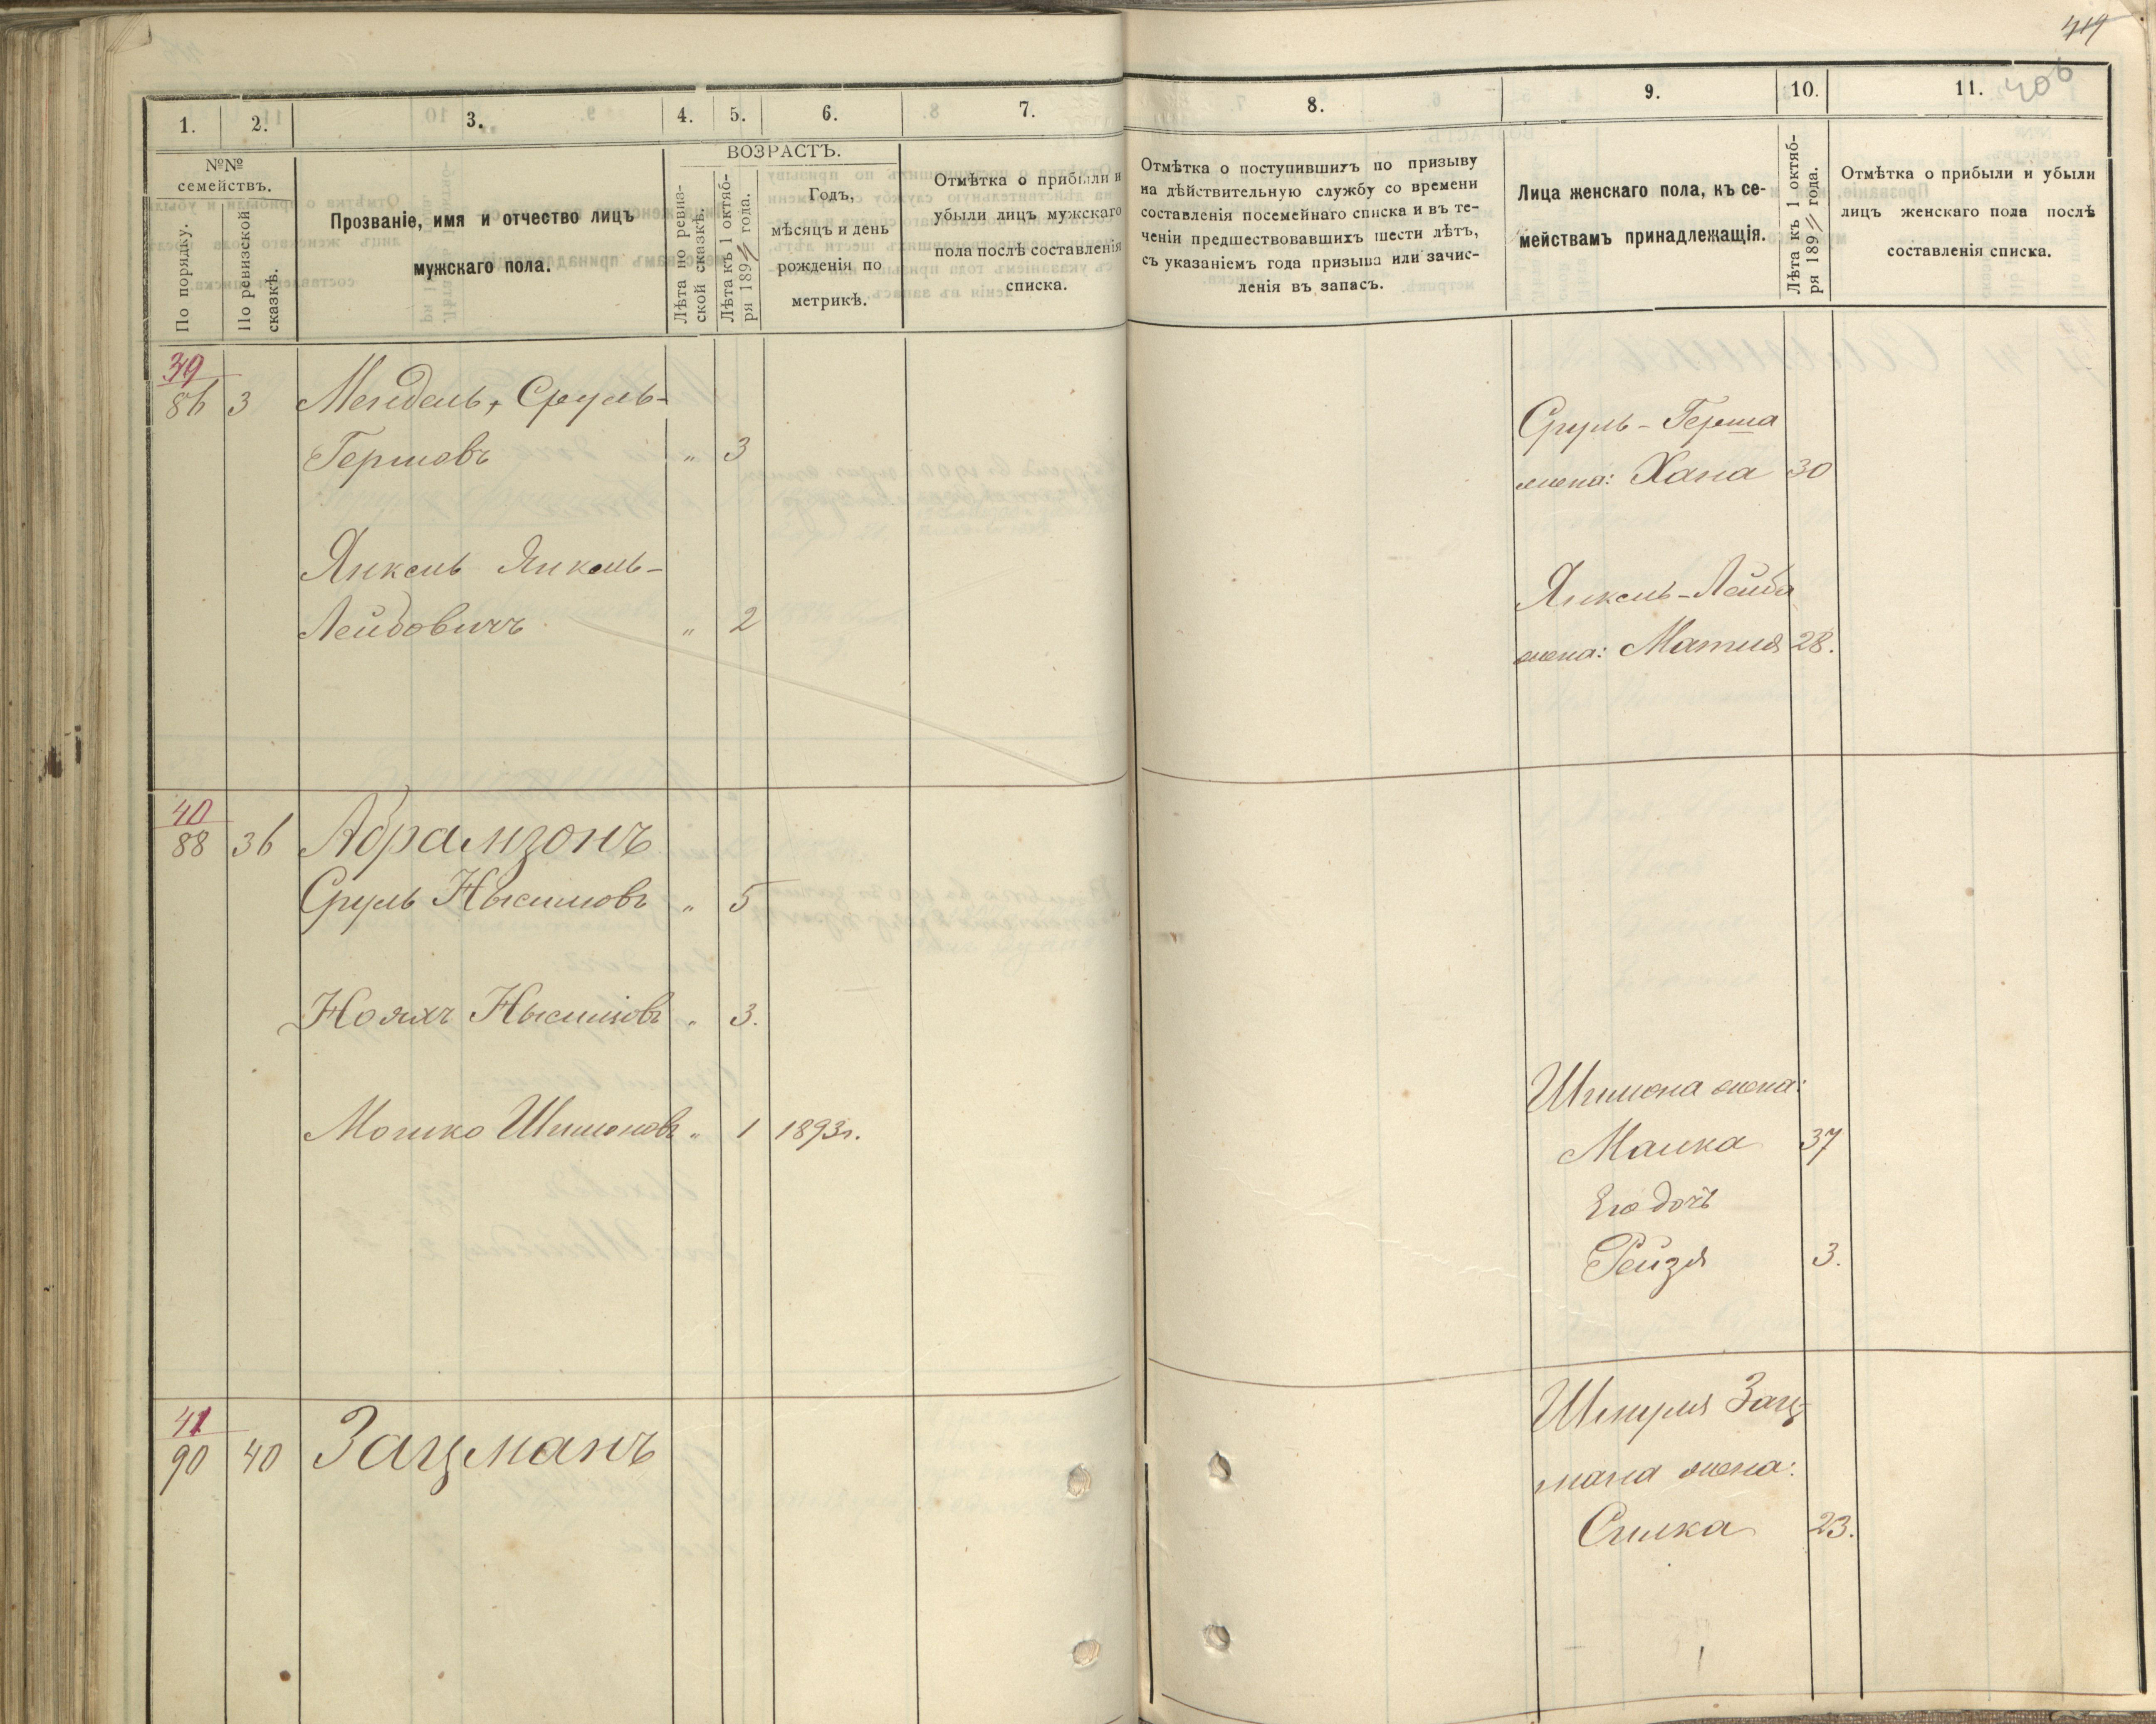 419
406
1.
2.
3.
4.
5.
6.
7.
8.
9.
10.
11.
№№ семействъ.
По порядку.
По ревизской сказкѣ.
Прозваніе, имя и отчество лицъ
мужскаго пола.
ВОЗРАСТЪ.
Лѣта по ревиз-
ской сказкѣ.
Лѣта къ 1 октяб-
ря 189 года.
Годъ,
мѣсяцъ и день
рожденія по
метрикѣ.
Отмѣтка о прибыли и
убыли лицъ мужскаго
пола послѣ составленія
списка.
Отмѣтка о поступившихъ по призыву
на дѣйствительную службу со времени
составленія посемейнаго списка и въ те-
ченіи предшествовавшихъ шести лѣтъ,
съ указаніемъ года призыва или зачис-
ленія въ запасъ.
Лица женскаго пола, къ се-
мействамъ принадлежащія.
Лѣта къ 1 октяб-
ря 189 года.
Отмѣтка о прибыли и убыли
лицъ женскаго пола послѣ
составленія списка.
39
86 3 Мендель, Сруль-
Гершовъ " 3
Сруль-Герша
жена: Хана 30
Янкель Янкель-
Лейбовичъ " 2
Янкель-Лейба
жена: Матля 28.
40
88 36 Абрамзонъ
Сруль Нысимовъ " 5
Нояхъ Нысимовъ " 3.
Мошко Шимоновъ " 1 1893г.
Шимона жена:
Малка 37
Его дочь
Рейзя 3.
41
90 40 Зацманъ
Шмуля Зац
мана жена:
Сипка 23.